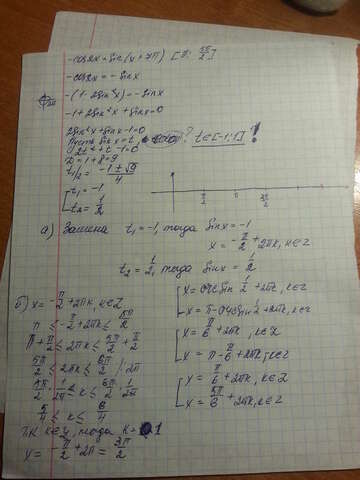 -cos2x=sin(x+7π) [π; 5π/2]
-cos2x=-sinx
-(1-2sin²x)=-sinx
-1+2sin²x+sinx=0
2sin²x+sinx-1=0
Пусть sinx=t, ? t∈[-1;1]!
2t²+t-1=0
D=1+8=9
t1/2 = (-1±√9)/4
[ t₁=-1
[ t₂=1/2
π/2 3π/2
а) Замена t₁=-1, тогда sinx=-1
x=-π/2+2πk, k∈Z
t₂=1/2, тогда sinx=1/2
[ x=arcsin 1/2+2πk, k∈Z
[ x=π-arcsin 1/2+2πk, k∈Z
[ x=π/6+2πk, k∈Z
[ x=π-π/6+2πk, k∈Z
[ x=π/6+2πk, k∈Z
[ x=5π/6+2πk, k∈Z
б) x=-π/2+2πk, k∈Z
π≤-π/2+2πk≤5π/2
π+π/2≤2πk≤5π/2+π/2
≤2πk≤6π/2 |:2π
·1/2π≤k≤6π/2·1/2π
≤k≤6/4
т.к k∈Z, тогда k=1
x=-π/2+2π=3π/2